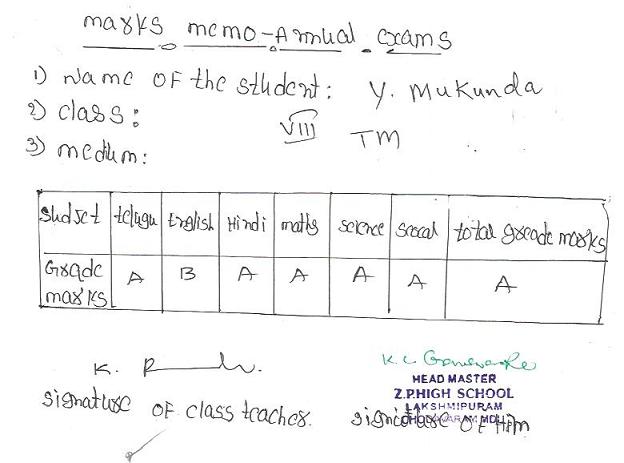 marks memo - Annual exams
1) Name of the student: Y. Mukunda
2) class: VIII
3) medium: TM
Subject telugu English Hindi maths science social total greade marks
Grade marks A B A A A A A
K.
K. C.
HEAD MASTER
Z.P.HIGH SCHOOL
LAKSHMIPURAM
signature of class teacher. signature of HM
MDL